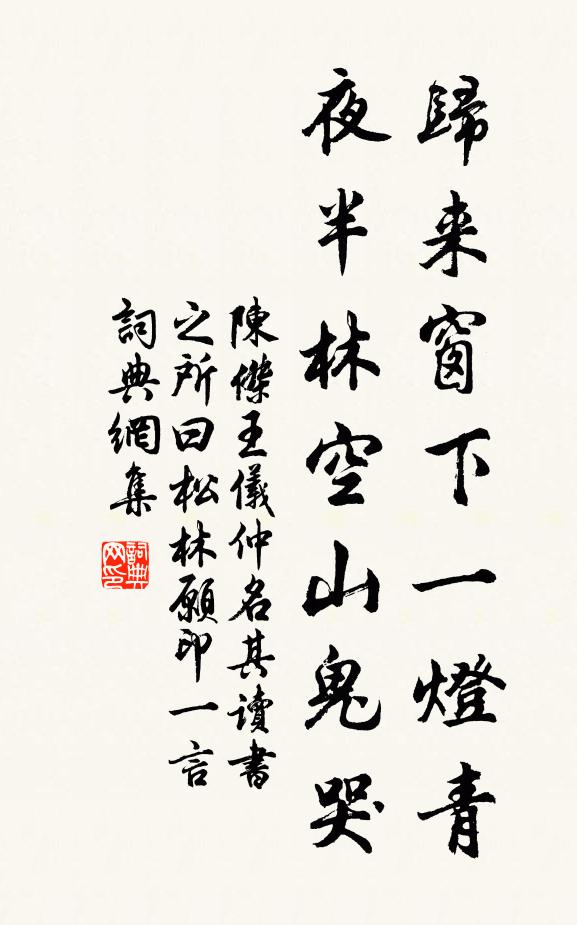 歸来窗下一燈青
夜半林空山鬼哭
陳傑王儀仲名其讀書
之所曰松林願印一言
詞典網集
詞典
网印